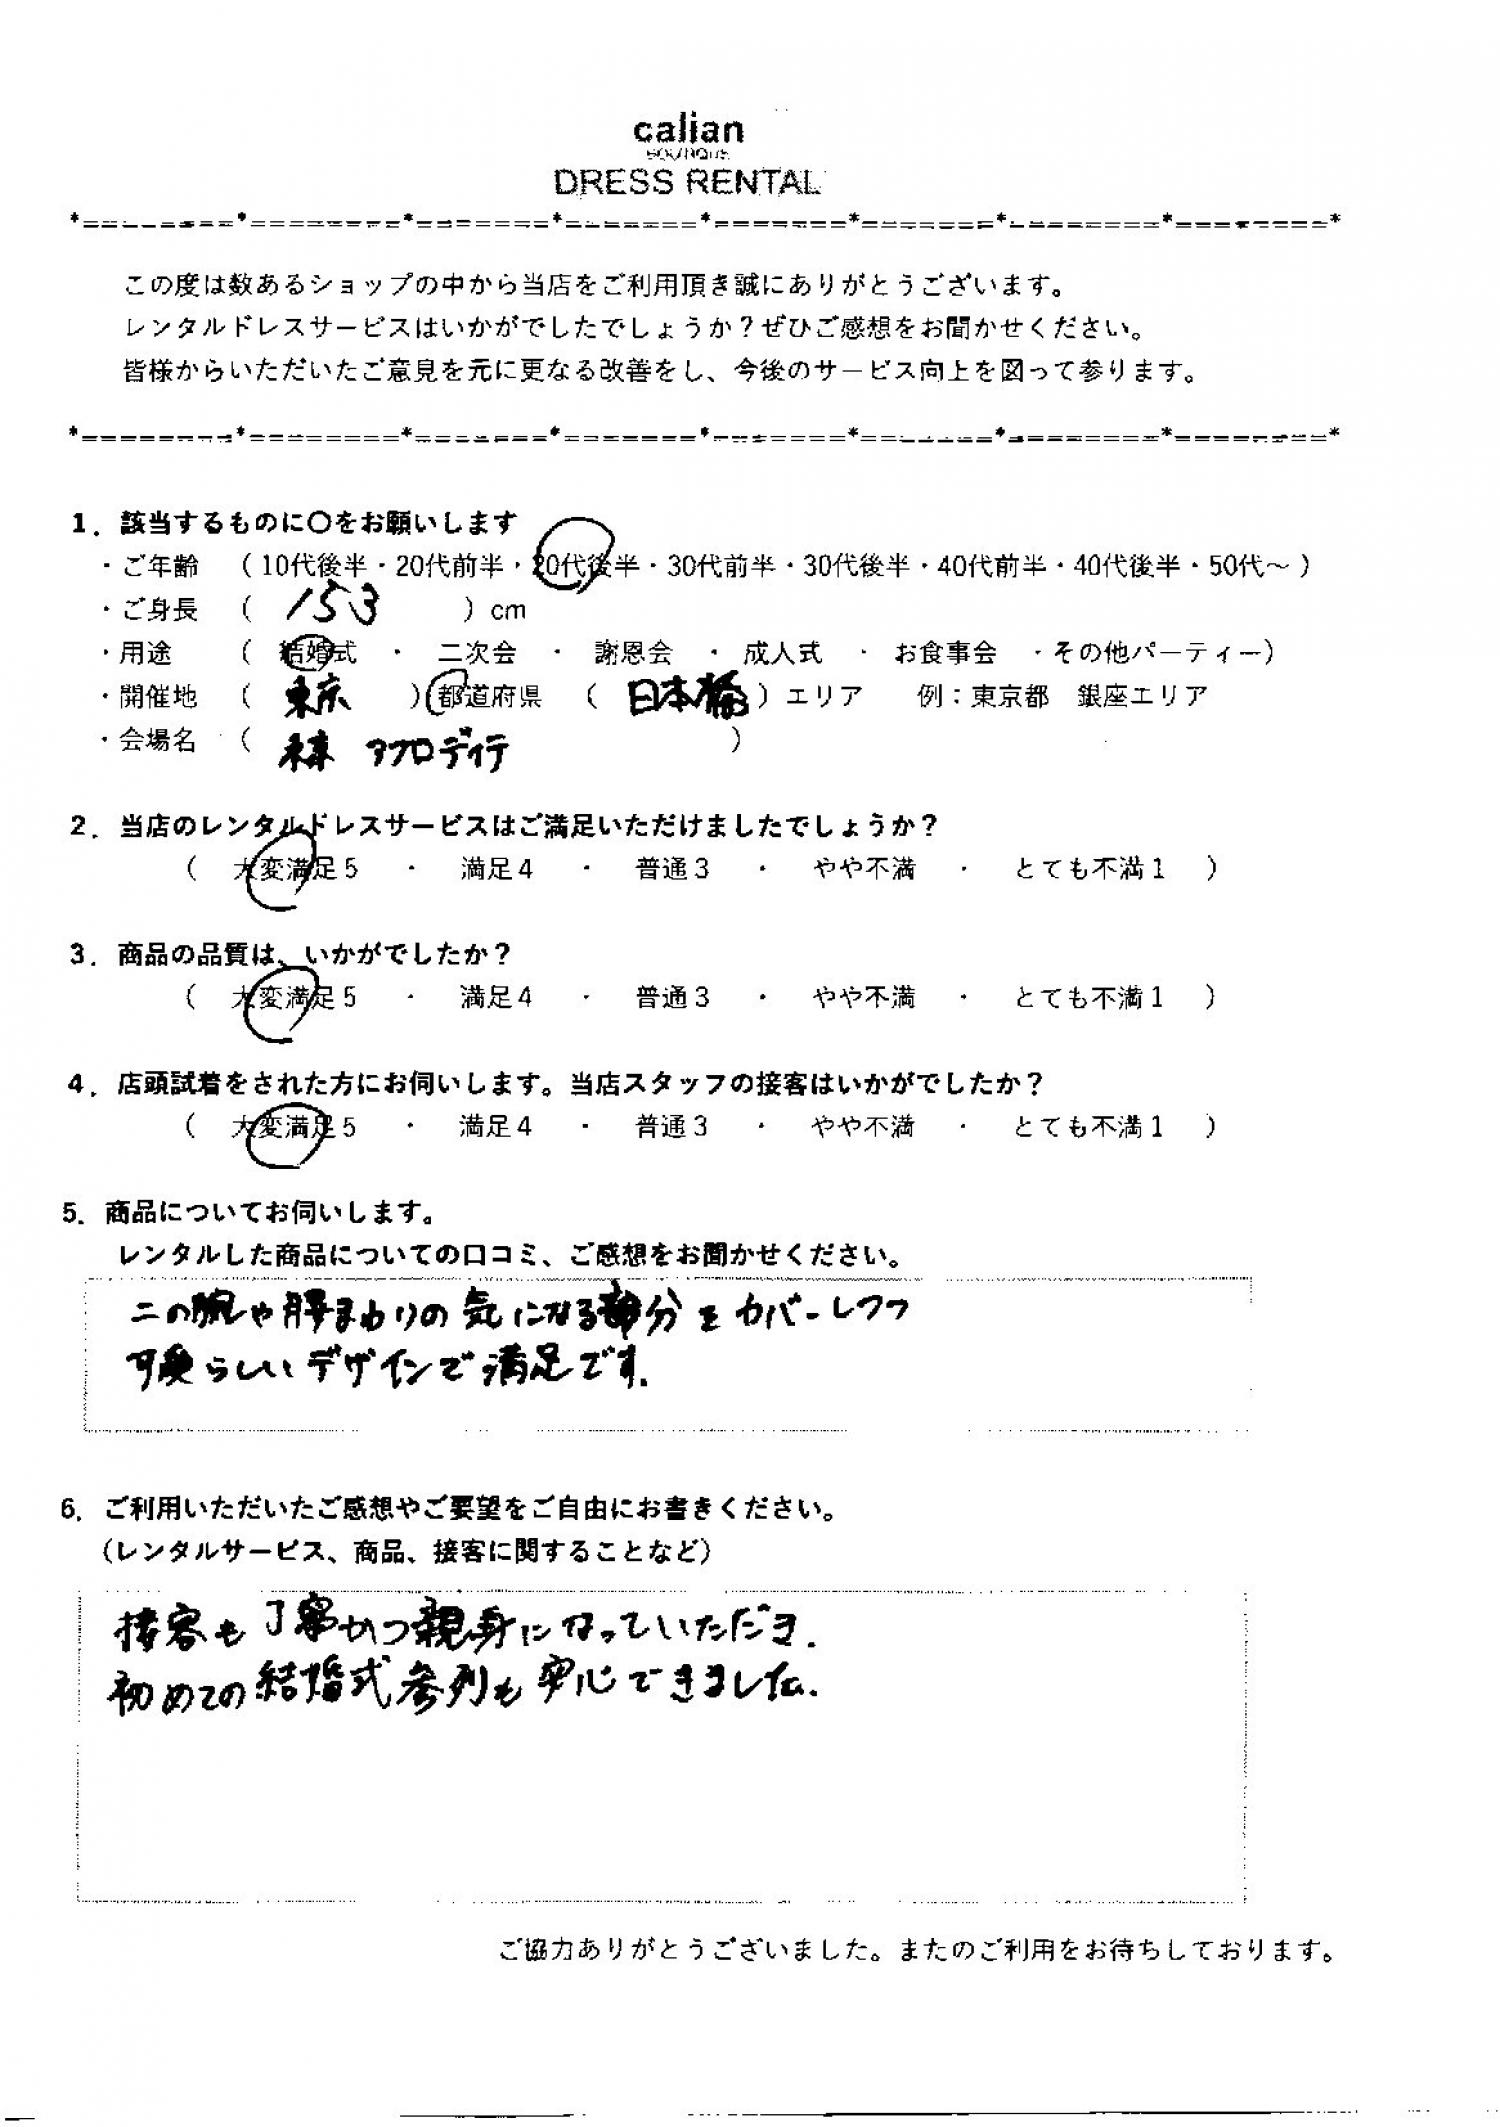 calian
BOUTIQUE
DRESS RENTAL
*========*========*=======*=======*=======*=======*========*========*
この度は数あるショップの中から当店をご利用頂き誠にありがとうございます。
レンタルドレスサービスはいかがでしたでしょうか？ぜひご感想をお聞かせください。
皆様からいただいたご意見を元に更なる改善をし、今後のサービス向上を図って参ります。
*========*========*=======*=======*=======*=======*========*========*
1．該当するものに〇をお願いします
・ご年齢 （10代後半・20代前半・20代後半・30代前半・30代後半・40代前半・40代後半・50代～）
・ご身長 （ 153 ）cm
・用途 （ 結婚式 ・ 二次会 ・ 謝恩会 ・ 成人式 ・ お食事会 ・その他パーティー）
・開催地 （ 東京 ）都道府県 （ 日本橋 ）エリア 例：東京都 銀座エリア
・会場名 （ アフロディテ ）
2．当店のレンタルドレスサービスはご満足いただけましたでしょうか？
（ 大変満足5 ・ 満足4 ・ 普通3 ・ やや不満 ・ とても不満1 ）
3．商品の品質は、いかがでしたか？
（ 大変満足5 ・ 満足4 ・ 普通3 ・ やや不満 ・ とても不満1 ）
4．店頭試着をされた方にお伺いします。当店スタッフの接客はいかがでしたか？
（ 大変満足5 ・ 満足4 ・ 普通3 ・ やや不満 ・ とても不満1 ）
5．商品についてお伺いします。
レンタルした商品についての口コミ、ご感想をお聞かせください。
二の腕や腰まわりの気になる部分をカバーしつつ
可愛らしいデザインで満足です.
6．ご利用いただいたご感想やご要望をご自由にお書きください。
（レンタルサービス、商品、接客に関することなど）
接客も丁寧かつ親身になっていただき.
初めての結婚式参列も安心できました.
ご協力ありがとうございました。またのご利用をお待ちしております。